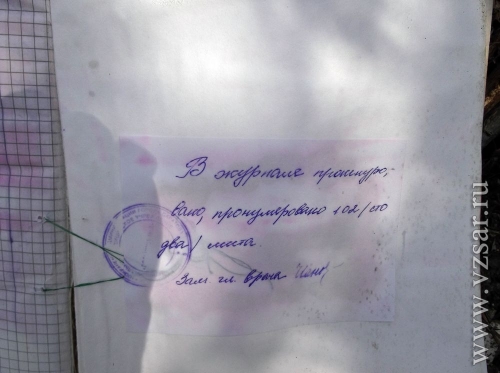 В журнале прошнуро-
вано, пронумеровано 102/сто
два/ листа.
Зам гл. врача
www.vzsar.ru